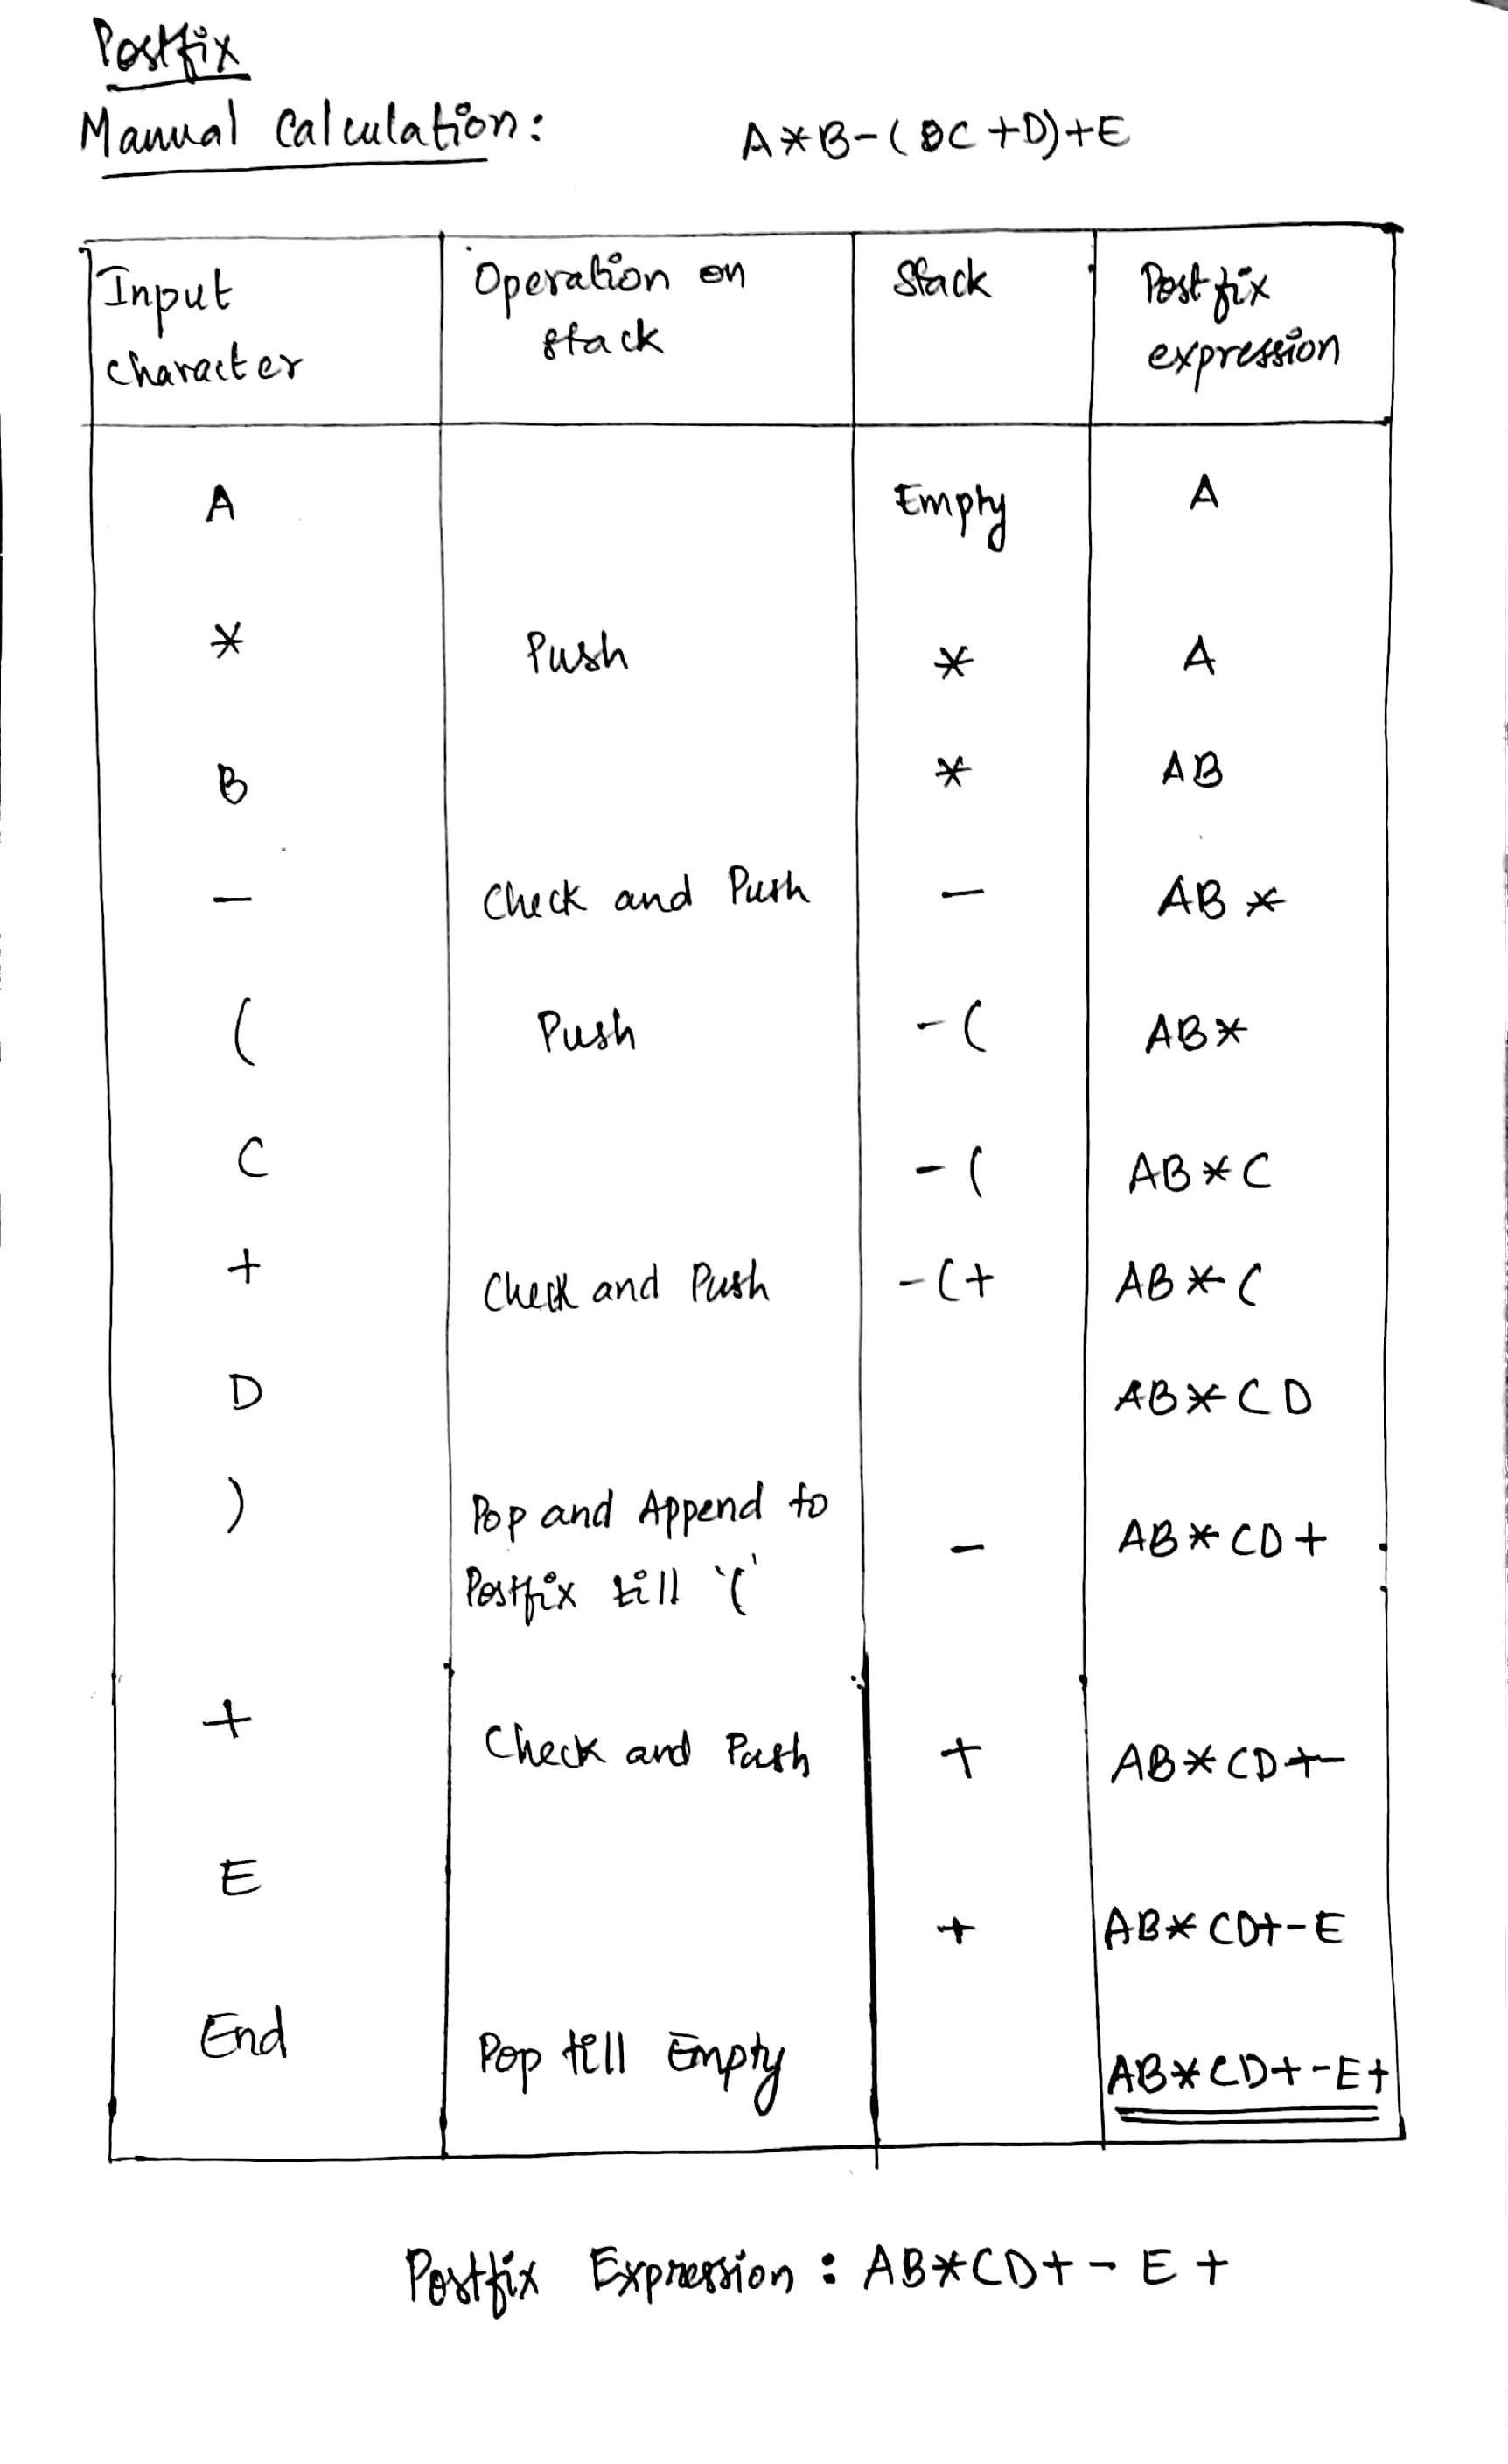 Postfix
Manual Calculation: A*B-(C+D)+E
Input character | Operation on stack | Stack | Postfix expression
A | | Empty | A
* | Push | * | A
B | | * | AB
- | Check and Push | - | AB*
( | Push | -( | AB*
C | | -( | AB*C
+ | Check and Push | -(+ | AB*C
D | | | AB*CD
) | Pop and Append to Postfix till '(' | - | AB*CD+
+ | Check and Push | + | AB*CD+-
E | | + | AB*CD+-E
End | Pop till Empty | | AB*CD+-E+
Postfix Expression: AB*CD+-E+